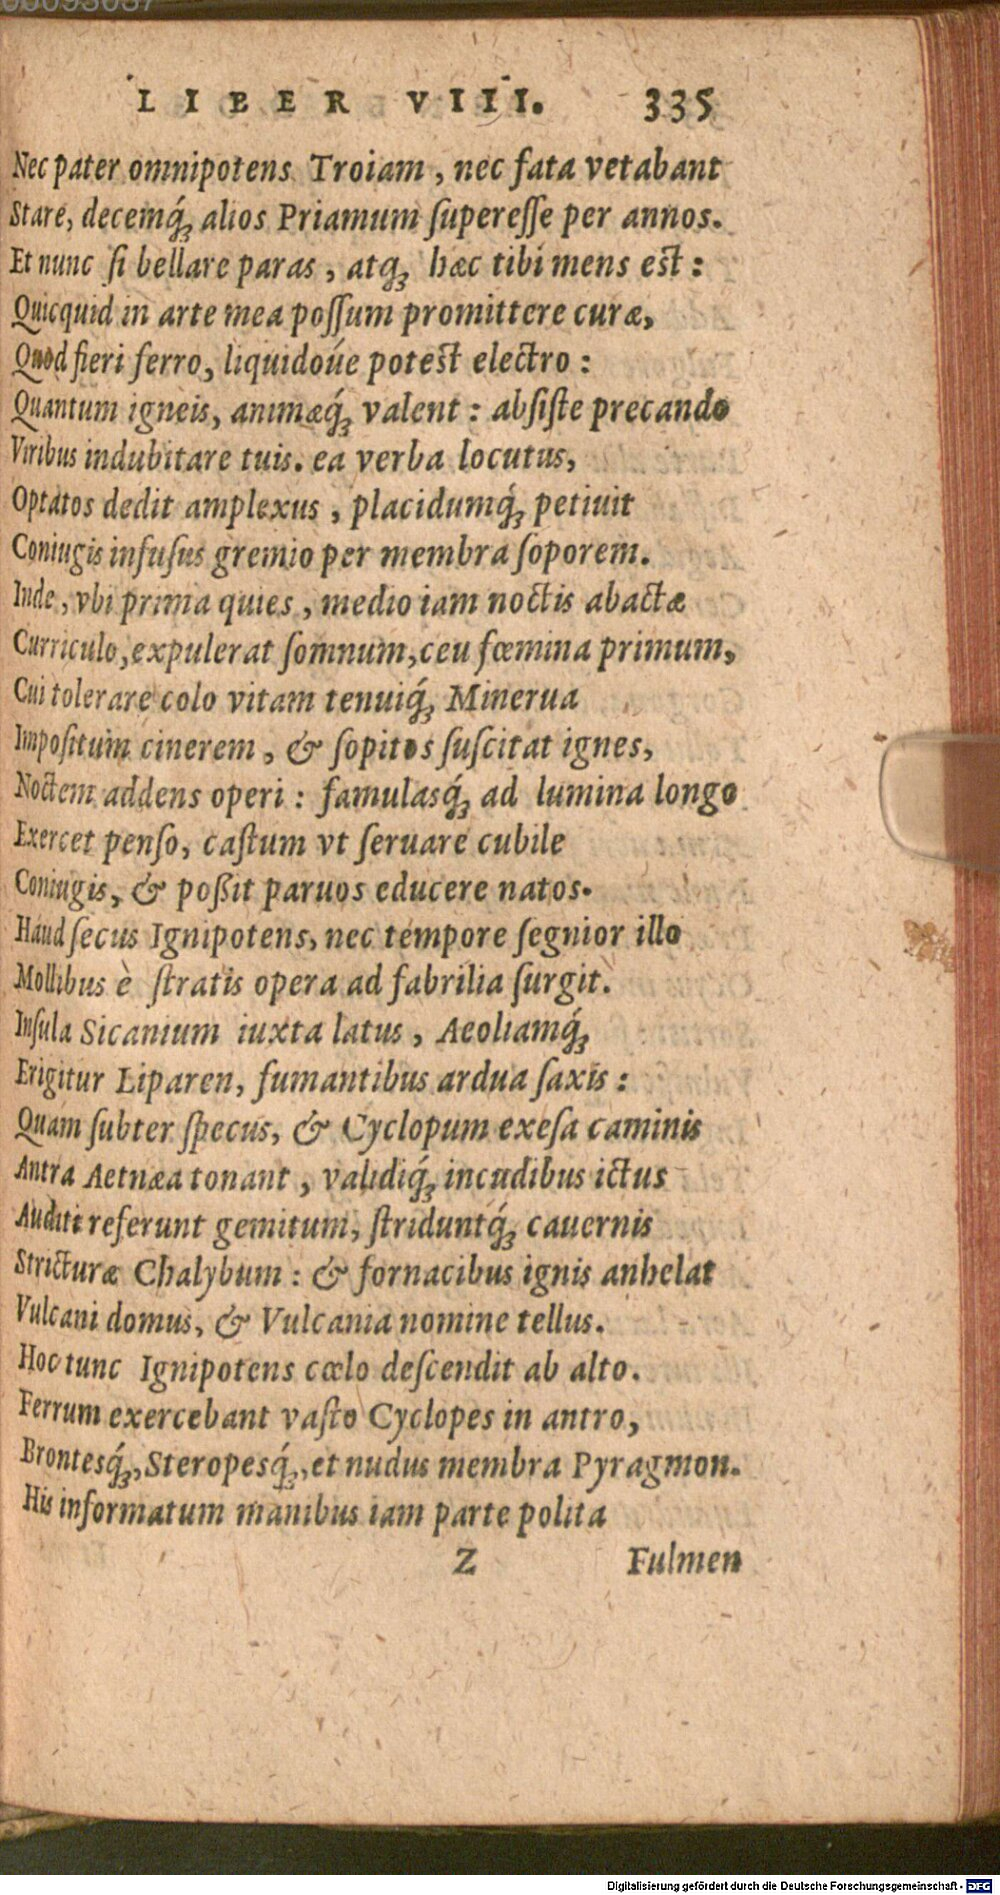 LIBER VIII. 335
Nec pater omnipotens Troiam, nec fata vetabant
Stare, decemq́ꝫ alios Priamum ſupereſſe per annos.
Et nunc ſi bellare paras, atqꝫ hæc tibi mens eſt:
Quicquid in arte mea poſſum promittere curæ,
Quod fieri ferro, liquidoúe poteſt electro:
Quantum igneis, animæq́ꝫ valent: abſiſte precando
Viribus indubitare tuis. ea verba locutus,
Optatos dedit amplexus, placidumq́ꝫ petiuit
Coniugis infuſus gremio per membra ſoporem.
Inde, vbi prima quies, medio iam noctis abactæ
Curriculo, expulerat ſomnum, ceu fœmina primum,
Cui tolerare colo vitam tenuiq́ꝫ Minerua
Impoſitum cinerem, & ſopitos ſuſcitat ignes,
Noctem addens operi: famulasq́ꝫ ad lumina longo
Exercet penſo, caſtum vt ſeruare cubile
Coniugis, & poßit paruos educere natos.
Haud ſecus Ignipotens, nec tempore ſegnior illo
Mollibus è ſtratis opera ad fabrilia ſurgit.
Inſula Sicanium iuxta latus, Aeoliamq́ꝫ
Erigitur Liparen, fumantibus ardua ſaxis:
Quam ſubter ſpecus, & Cyclopum exeſa caminis
Antra Aetnæa tonant, validiq́ꝫ incudibus ictus
Auditi referunt gemitum, ſtriduntq́ꝫ cauernis
Stricturæ Chalybum: & fornacibus ignis anhelat
Vulcani domus, & Vulcania nomine tellus.
Hoc tunc Ignipotens cœlo deſcendit ab alto.
Ferrum exercebant vaſto Cyclopes in antro,
Brontesq́ꝫ, Steropesq́ꝫ, et nudus membra Pyragmon.
His informatum manibus iam parte polita
Z Fulmen
Digitalisierung gefördert durch die Deutsche Forschungsgemeinschaft - DFG